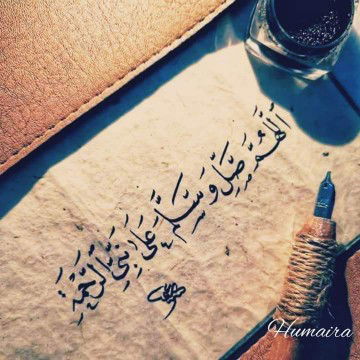 اَللّٰهُمَّ صَلِّ وَسَلِّمْ عَلَى نَبِيِّ الرَّحْمَةِ
Humaira